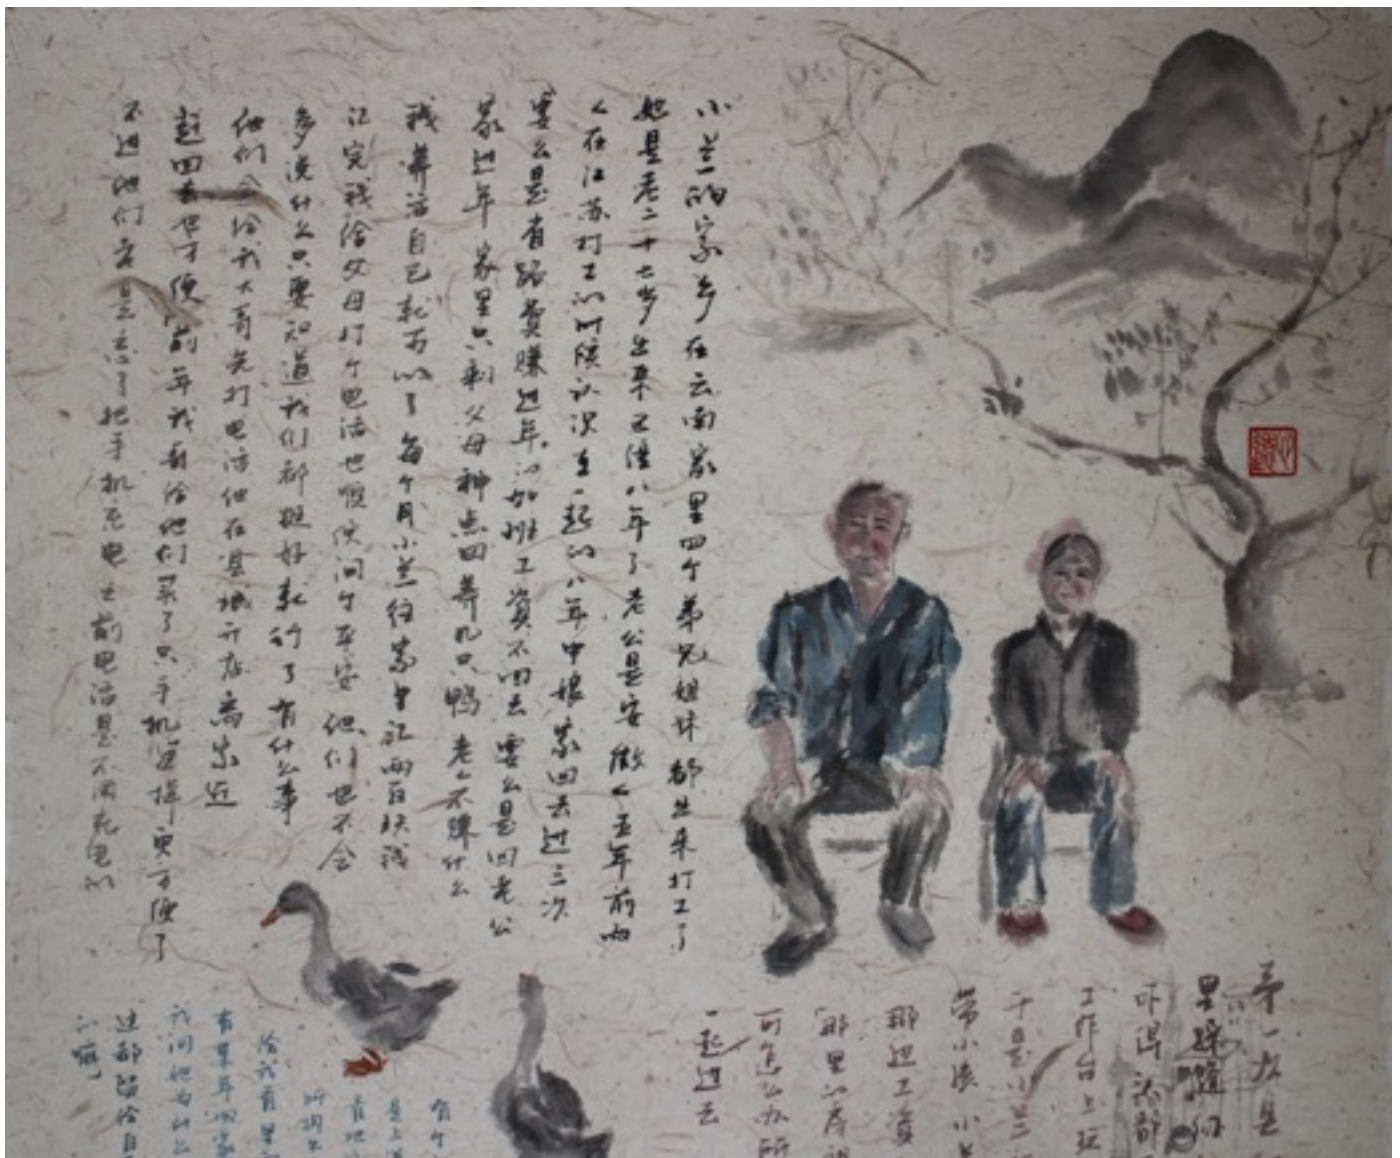 小兰的家乡在云南家里四个弟兄姐妹都出来打工了
她是老二十七岁出来已经八年了老公是安徽人五年前两
人在江苏打工的时候认识在一起的八年中娘家回去过三次
要么是有路费赚过年的加班工资不回去要么是回老公
家过年家里只剩父母种点田养几只鸭老人不赚什么
钱养活自己就可以了每个月小兰往家里汇两百块钱
汇完钱给父母打个电话也顺便问个平安他们也不会
多说什么只要知道我们都挺好就行了有什么事
他们会给我大哥先打电话他在县城开店离家近
赶回去也方便前年我哥给他们买了只手机这样更方便了
不过他们老是忘了把手机充电之前电话是不用充电的
第一次是
里
吓得
工作台上班
于是小兰
带小孩
那边工资
那里的房租
可怎么办所
一起过去
有个
是上
给我看
有某年回家
我问她为什么
这都留给自